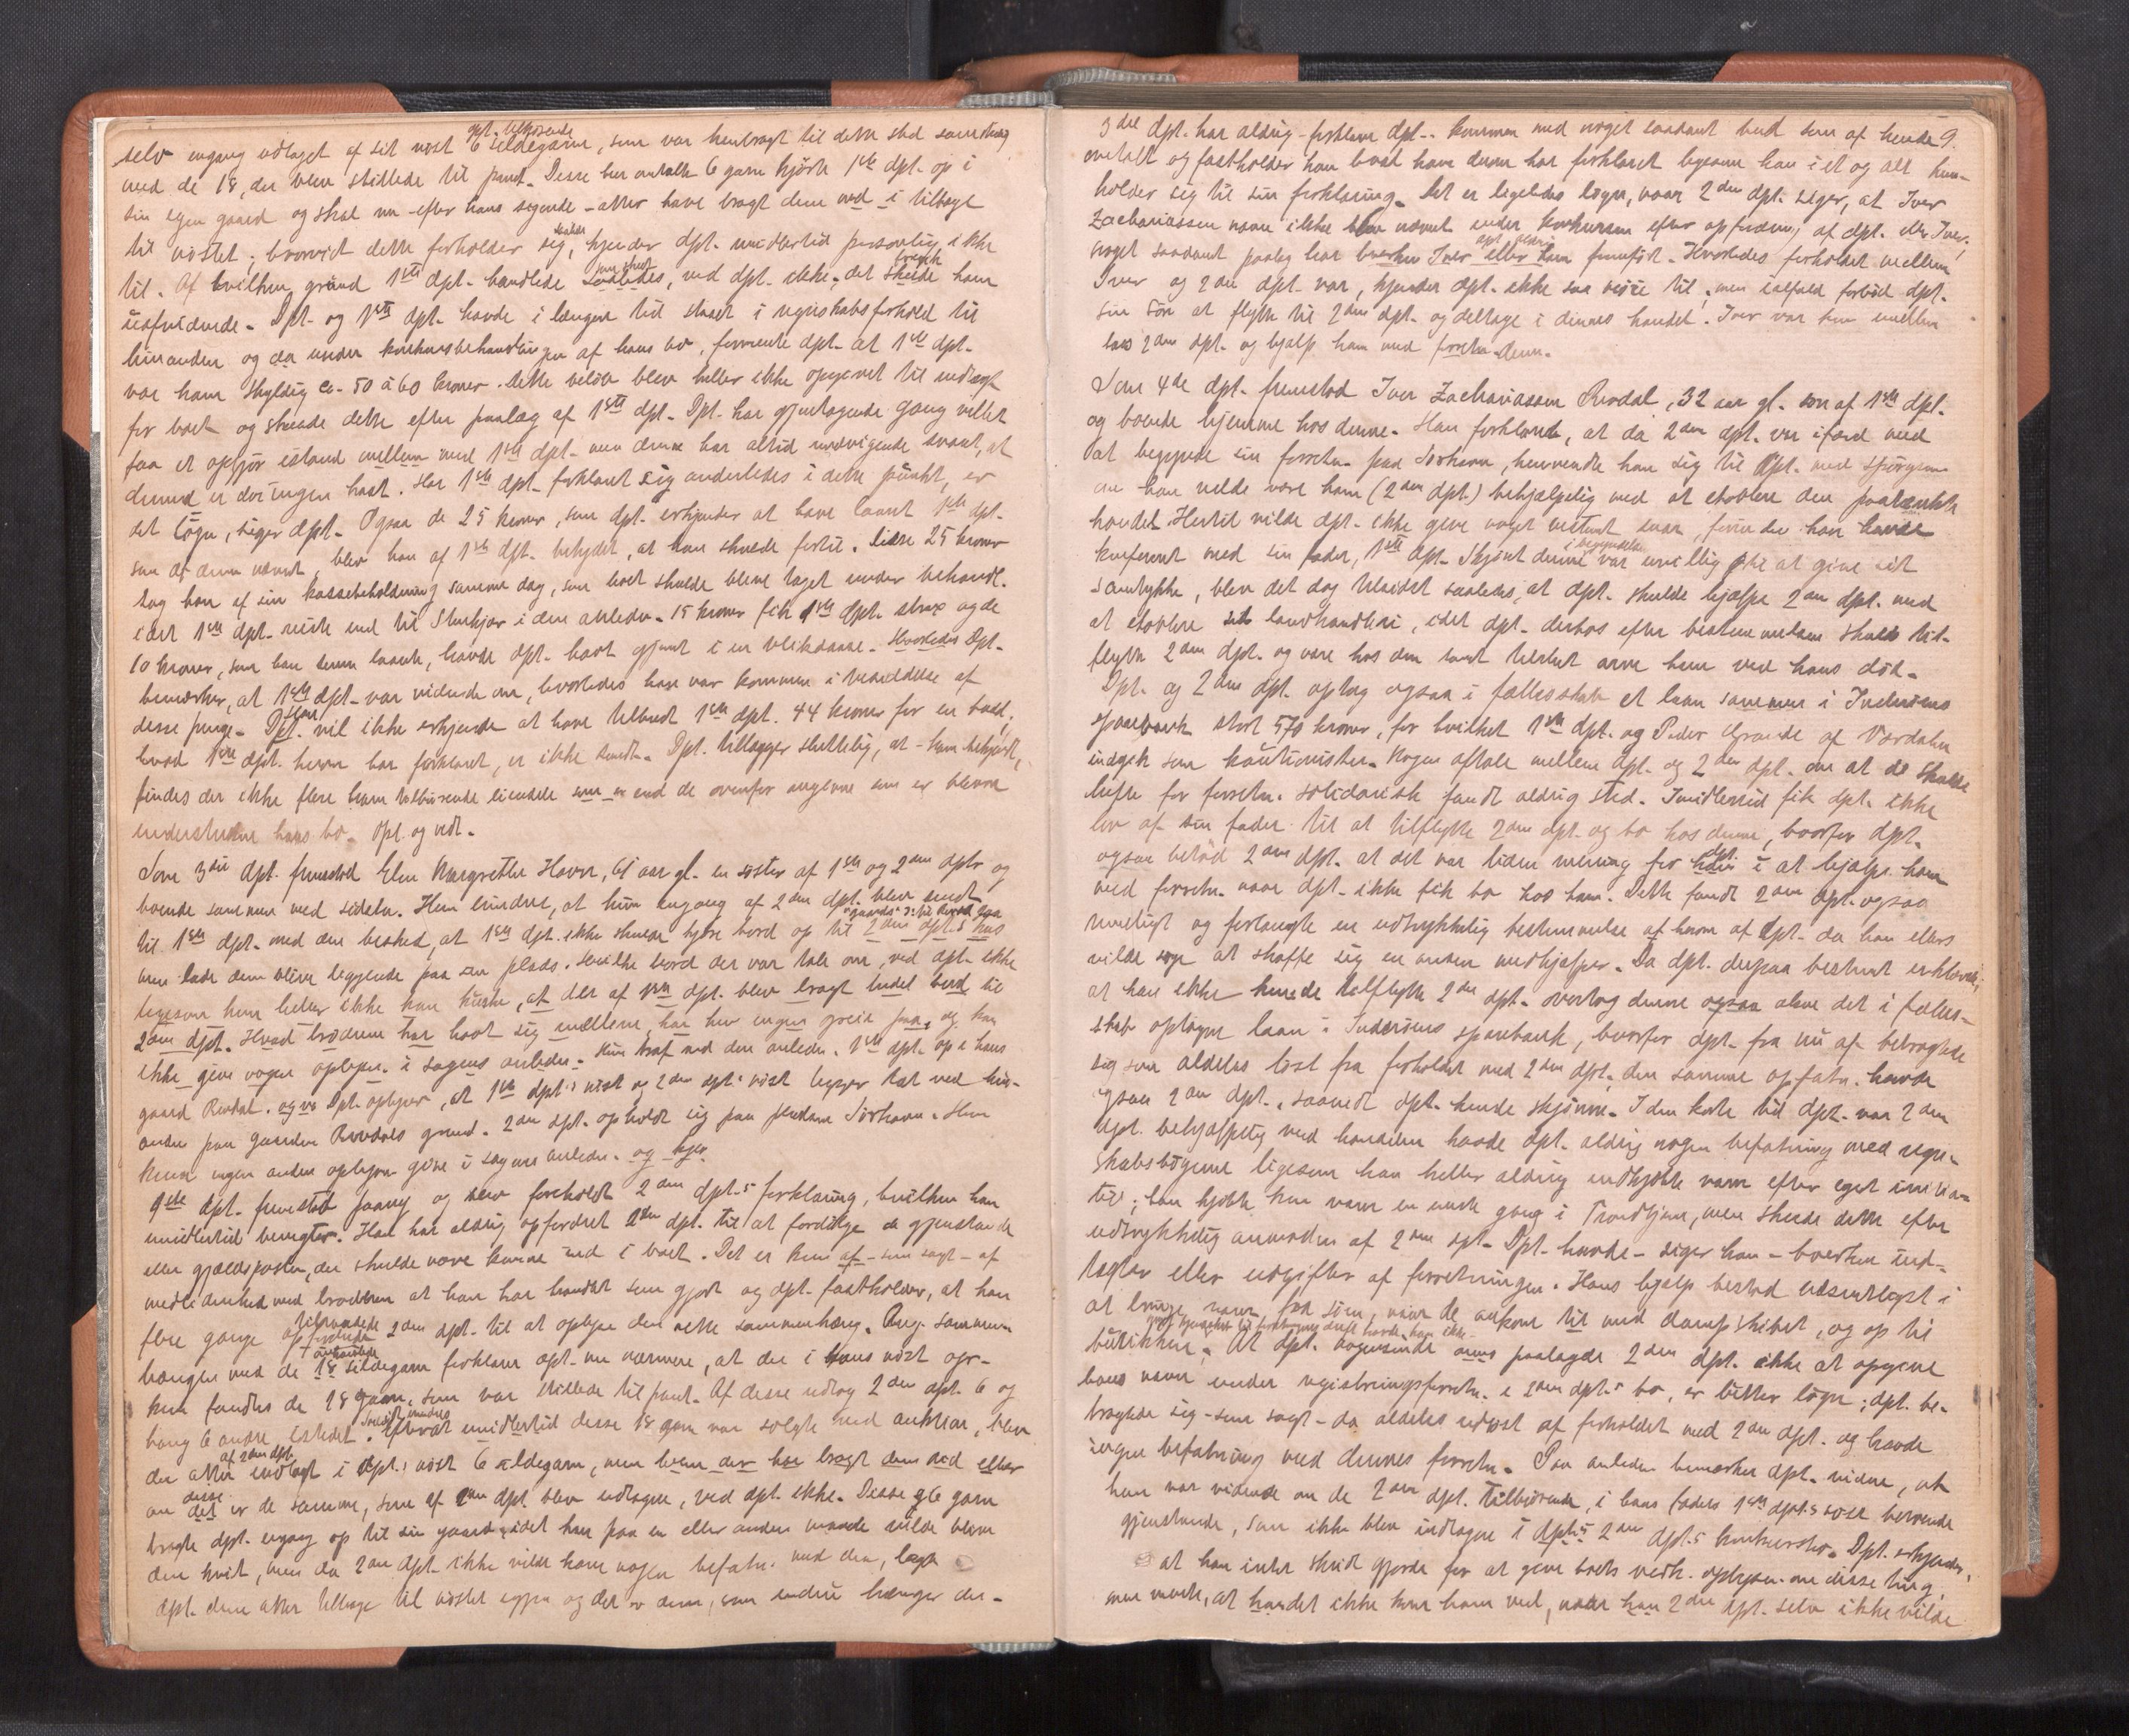 dpt. tilhørende
selv engang udtaget af sit nøst 6 sildegarne, som var henbragt til dette sted sammen
med de 18, der blev stillede til pant. Disse her omtalte 6 garn kjørte 1ste dpt. op i
sin egen gaard og skal nu efter hans sigende - atter have bragt dem ned i tilbage
til nøstet; hvorvidt dette forholder sig, kjender dpt. imidlertid personlig ikke
til. Af hvilken grund 1ste dpt. handlede som skeet, ved dpt. ikke, det skede ham
uafvidende. Dpt. og 1ste dpt. havde i længere tid staaet i regnskabsforhold til
hinanden og da under konkursbehandlingen af hans bo, formente dpt. at 1ste dpt.
var ham skyldig ca. 50 à 60 kroner. Dette beløb blev heller ikke opgivet til indtægt
for boet og skeede dette efter paalæg af 1ste dpt. Dpt. har gjentagende gang villet
faa et opgjør istand mellem med 1ste dpt. men denne har altid undvigende svaret, at
dermed er der ingen hast. Har 1ste dpt. forklaret sig anderledes i dette punkt, er
det løgn, siger dpt. Ogsaa de 25 kroner, som dpt. erkjender at have laant 1ste dpt.
som af denne nævnt, blev han af 1ste dpt. betydet, at han skulde fortie. Disse 25 kroner
tog han af sin kassebeholdning samme dag, som boet skulde blive taget under behandl.
idet 1ste dpt. reiste ind til Stenkjær i den anledn. 15 kroner fik 1ste dpt. strax og de
10 kroner, som han senere laante, havde dpt. havt gjemt i en blikdaase. Hvorledes Dpt.
bemærker, at 1ste dpt. var vidende om, hvorledes han var kommen i besiddelse af
disse penge. Dpt. vil ikke erkjende at have tilbudt 1ste dpt. 44 kroner for en baad;
hvad 1ste dpt. herom har forklaret, er ikke sandt. Dpt. tillægger sluttelig, at - ham bekjendt,
findes der ikke flere ham tilhørende eiendele end de ovenfor angivne som er blevne
underslaaede hans bo. Opl. og vedt.
Som 3die dpt. fremstod Elen Margrethe Havn, 61 aar gl. en søster af 1ste og 2den dpt. og
boende sammen med sidstn. Hun erindrer, at hun engang af 2den dpt. blev sendt
til 1ste dpt. med den besked, at 1ste dpt. ikke skulde kjøre bord op til 2den dpt.s hus
men lade dem blive liggende paa sin plads. Hvilke bord der var tale om, ved dpt. ikke
ligesom hun heller ikke kan huske, at der af 1ste dpt. blev bragt bord til
2den dpt. Hvad brødrene har havt sig imellem, har hun ingen greie paa, og kan
ikke give nogen oplysn. i sagens anledn. Hun traf med den anledn. 1ste dpt. op i hans
gaard Rovdal. Dpt. oplyser, at 1ste dpt.s nøst og 2den dpt.s nøst ligger tæt ved hin-
anden paa gaarden Rovdals grund. 2den dpt. opholdt sig paa pladsen Sørhavn. Hun
kunde ingen anden oplysn. give i sagens anledn. og vedt.
1ste dpt. fremstod paany og blev foreholdt 2den dpt.s forklaring, hvilken han
imidlertid benegter. Han har aldrig opfordret 2den dpt. til at fordølge de gjenstande
eller gjældsposter, der skulde være komne ind i boet. Det er kun af - som sagt - af
medlidenhed med broderen at han har handlet som gjort og dpt. fastholder, at han
flere gange tilraadede 2den dpt. til at oplyse den rette sammenhæng. Ang. sammen-
hængen med de omhandlede 18 sildegarn forklarer dpt. nu nærmere, at der i hans nøst op-
kun fandtes de 18 garn, som var stillede til pant. Af disse udtog 2den dpt. 6 og
hang 6 andre istedet. Efterat imidlertid disse 18 garn var solgte ved auktion, blev
der atter af 2den dpt. indlagt i dpt.s nøst 6 sildegarn, men hvem der har bragt dem ned eller
om disse er de samme, som af 2den dpt. blev udtagne, ved dpt. ikke. Disse 6 garn
bragte dpt. engang op til sin gaard, idet han paa en eller anden maade vilde blive
dem kvit, men da 2den dpt. ikke vilde have nogen befatn. med dem, lagde
dpt. dem atter tilbage til nøstet igjen og det er dem, som endnu hænger der.
9.
3die dpt. har aldrig - forklarer dpt. - kommen med noget saadant bud som af hende
omtalt og fastholder han hvad han derom har forklaret ligesom han i et og alt hen-
holder sig til sin forklaring. Det er ligeledes løgn, naar 2den dpt. siger, at Iver
Zachariassen navn ikke blev nævnt under konkursen efter opfordring af dpt. eller Iver;
noget saadant paalæg har hverken Iver eller ham fremført. Hvorledes forholdet mellem
Iver og 2den dpt. var, kjender dpt. ikke saa nøie til, men ialfald forbød dpt.
sin søn at flytte til 2den dpt. og deltage i dennes handel. Iver var kun imellem
hos 2den dpt. og hjalp ham med forretn. denn.
Som 4de dpt. fremstod Iver Zachariassen Rovdal, 32 aar gl. søn af 1ste dpt.
og boende hjemme hos denne. Han forklarer, at da 2den dpt. var ifærd med
at begynde sin forretn. paa Sørhavn, henvendte han sig til dpt. med spørgsm.
om han vilde være ham (2den dpt.) behjælpelig med at etablere den paatænkte
handel. Hertil vilde dpt. ikke give noget bestemt svar, førinden han havde
konfereret med sin fader, 1ste dpt. Skjønt denne i begyndelsen var uvillig til at give sit
samtykke, blev det dog tilsidst saaledes, at dpt. skulde hjælpe 2den dpt. med
at etablere sit landhandleri, idet dpt. derhos efter bestemmelsen skulde til-
flytte 2den dpt. og være hos den samt tilsidst arve ham ved hans død.
Dpt. og 2den dpt. optog ogsaa i fællesskab et laan sammen i Inderøens
sparebank stort 570 kroner, for hvilket 1ste dpt. og Peder Grande af Værdalen
indgik som kautionister. Nogen aftale mellem dpt. og 2den dpt. om at de skulde
hefte for forretn. solidarisk fandt aldrig sted. Imidlertid fik dpt. ikke
lov af sin fader til at tilflytte 2den dpt. og bo hos denne, hvorfor dpt.
ogsaa betød 2den dpt. at det var liden mening for dpt. i at hjælpe ham
med forretn. naar dpt. ikke fik bo hos ham. Dette fandt 2den dpt. ogsaa
rimeligt og forlangte en udtrykkelig bestemmelse af herom af dpt. da han ellers
vilde søge at skaffe sig en anden medhjælper. Da dpt. derpaa bestemt erklærede,
at han ikke kunde tilflytte 2den dpt. overtog denne ogsaa alene det i fælles-
skab optagne laan i Inderøens sparebank, hvorfor dpt. fra nu af betragtede
sig som aldeles løst fra forholdet med 2den dpt.; den samme opfatn. havde
ogsaa 2den dpt., saavidt dpt. kunde skjønne. I den korte tid dpt. var 2den
dpt. behjælpelig ved handelen havde dpt. aldrig nogen befatning med regn-
skabsbøgerne ligesom han heller aldrig indkjøbte varer efter eget initia-
tiv; han kjøbte kun varer en enkelt gang i Trondhjem, men skede dette efter
udtrykkelig anmodn. af 2den dpt. Dpt. havde - siger han - hverken ind-
tægter eller udgifter af forretningen. Hans hjælp bestod væsentligst i
at bringe varer, fra søen, naar de ankom til med dampskibet, og op til
butikken. At dpt. nogensinde paalagde 2den dpt. ikke at opgive
hans navn under registreringsforretn. i 2den dpt.s bo, er bitter løgn; dpt. be-
tragtede sig - som sagt - da aldeles udløst af forholdet med 2den dpt. og havde
ingen befatning med dennes forretn. Paa anledn. bemærker dpt. videre, at
han var vidende om de 2den dpt. tilhørende, i hans faders 1ste dpt.s nøst beroende
gjenstande, som ikke blev indtagne i 2den dpt.s konkursbo. Dpt. erkjender,
at han intet skridt gjorde for at give boets vedk. oplysn. om disse ting,
men mente, at det ikke kom ham ved, naar han 2den dpt. selv ikke vilde